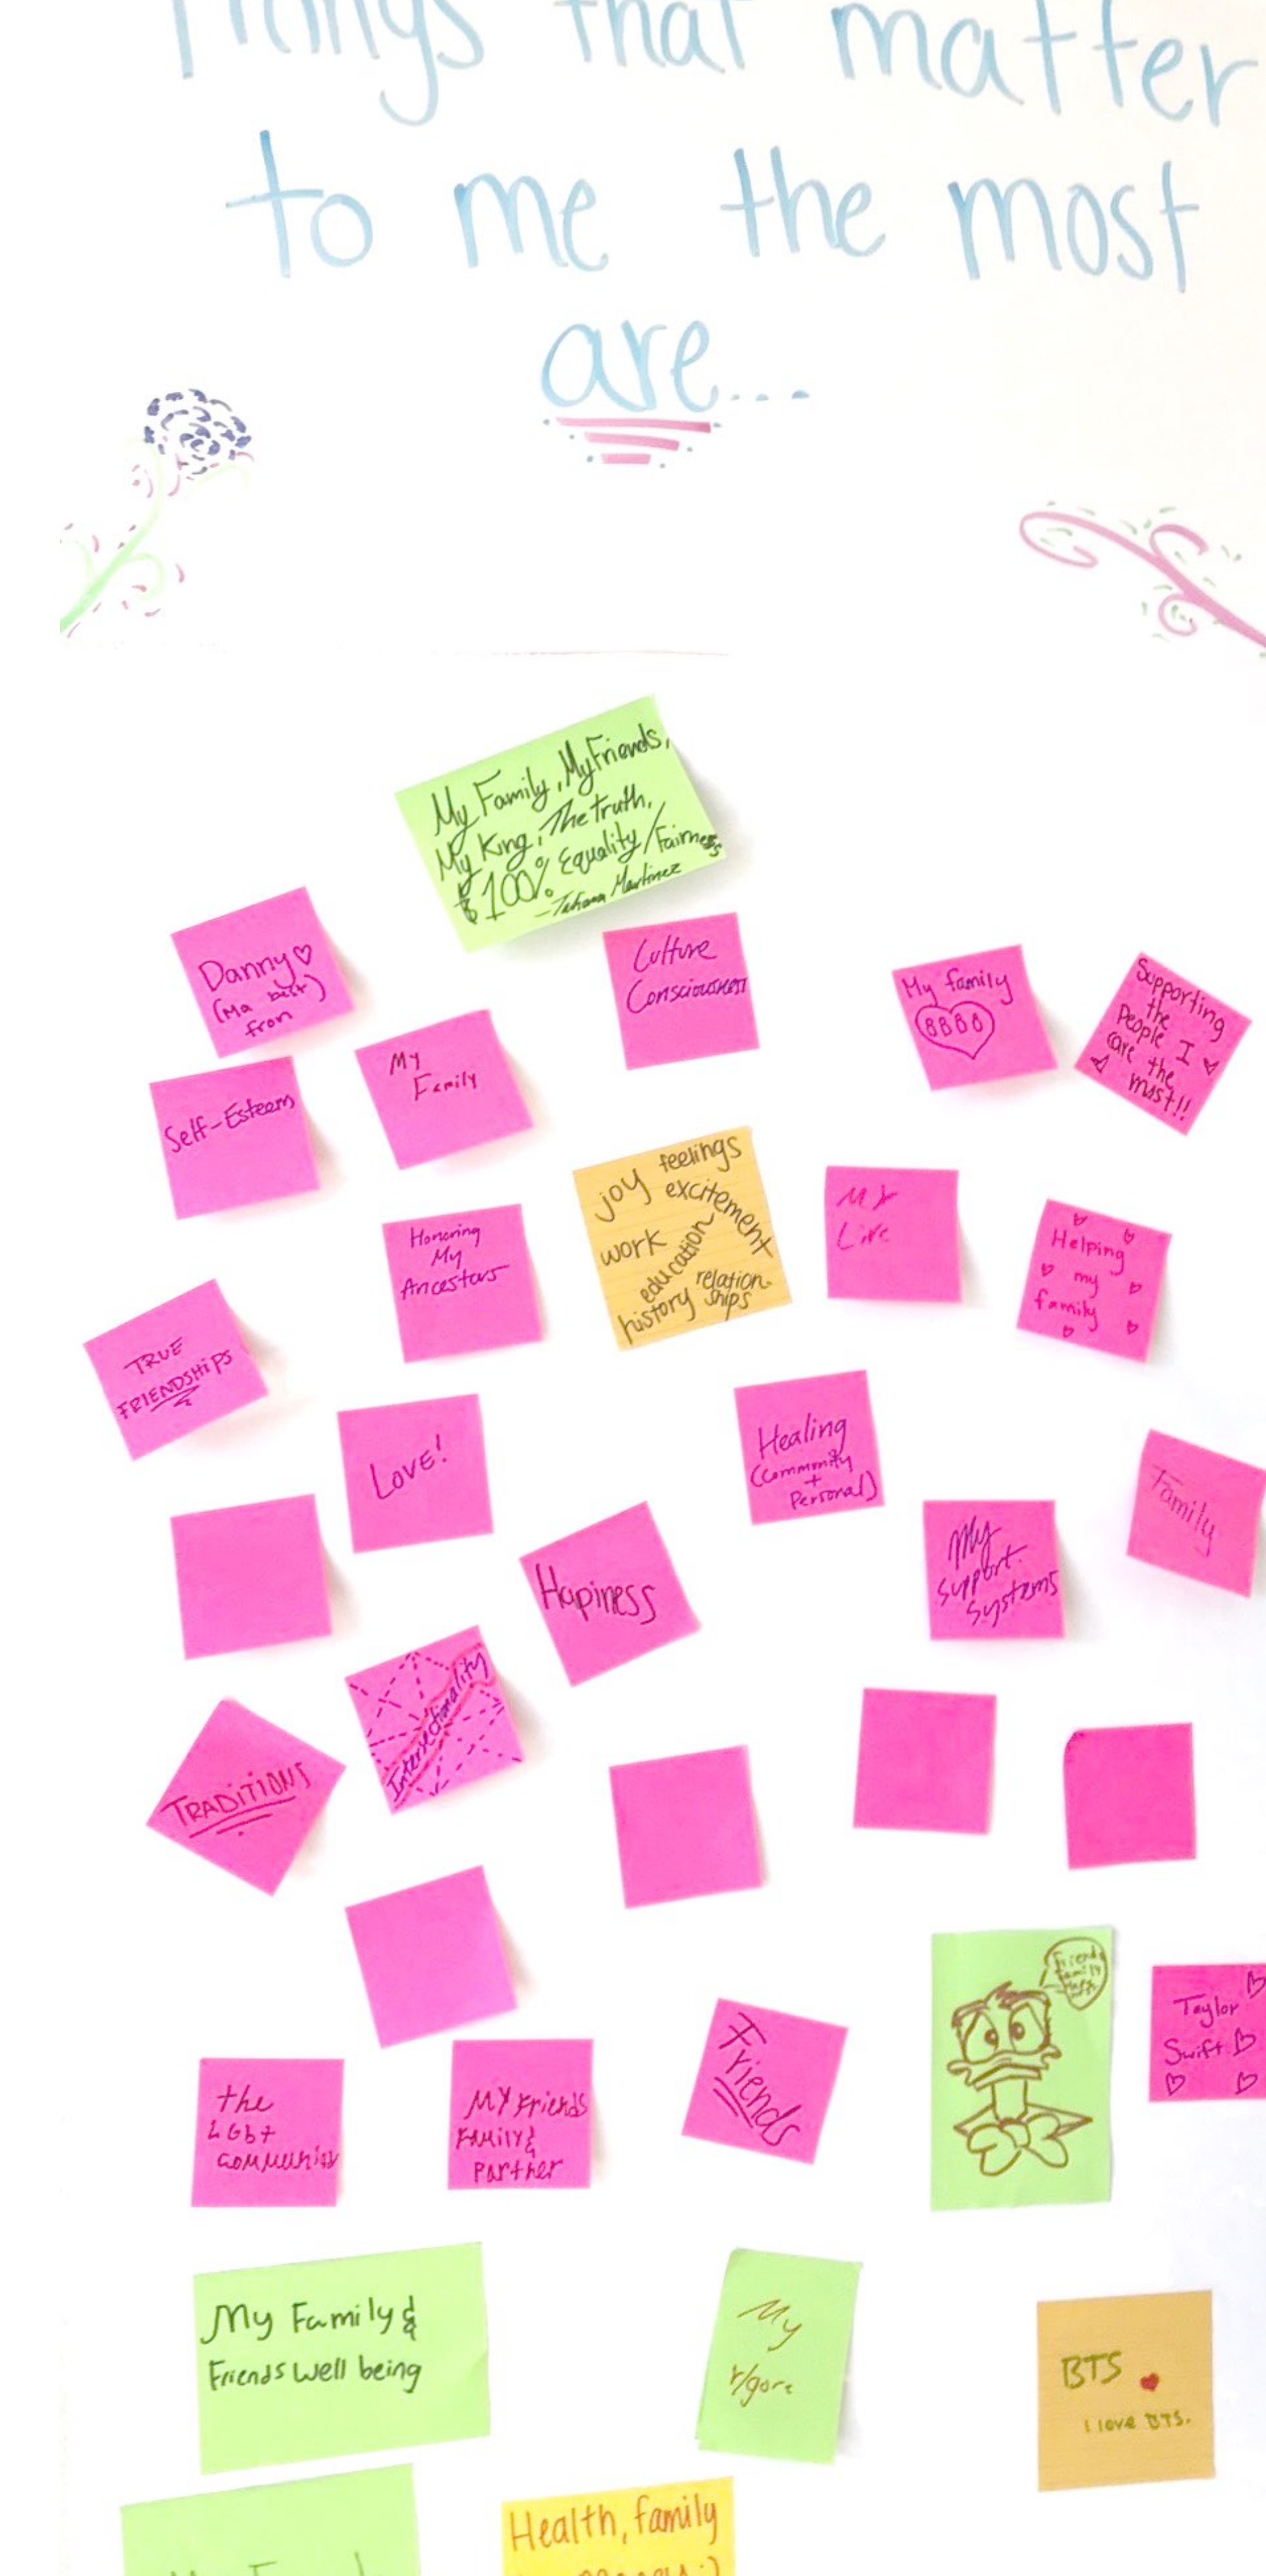 Things that matter
to me the most
are...
My Family, My Friends,
My King, The truth,
$100% Equality/Fairness
Martinez
Danny♡
(Ma best)
fron
Culture
Consciousness
My family
Supporting
the
people I
care the
most!!
My
Family
Self-Esteem
joy feelings
excitement
work
education
relation-
ships
history
My
Honoring
My
Ancestors
Helping
my
family
TRUE
FRIENDSHIPS
LOVE!
Healing
(Community
+
Personal)
Family
My
Support
Systems
Hapiness
Intersectionality
TRADITIONS
Friends
Family
Taylor
Swift
Friends
the
LGbt
community
My Friends
Family &
Partner
My Family &
Friends Well being
My
BTS
I love BTS.
Health, family